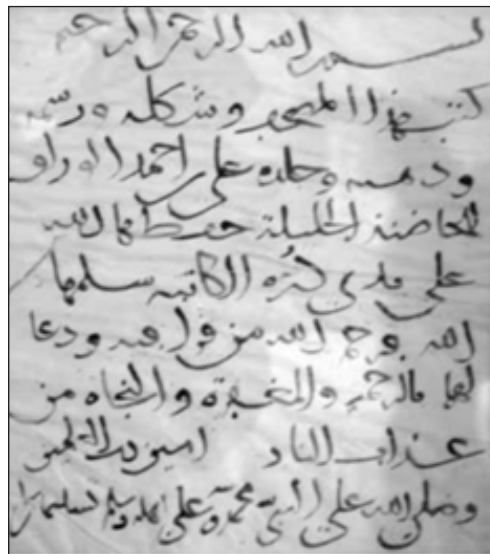 بسم الله الرحمن الرحيم
كتب هذا المصحف وشكله ورسمه
وذهبه وجلده علي بن احمد الوراق
للحاضنة الجليلة حفظها الله
على يدي درة الكاتبه سلمها
الله فرحم الله من قرا فيه ودعا
لهما بالرحمة والمغفرة والنجاه من
عذاب النار امين رب العلمين
وصلى الله على النبي محمد وعلى اهله وسلم تسليما